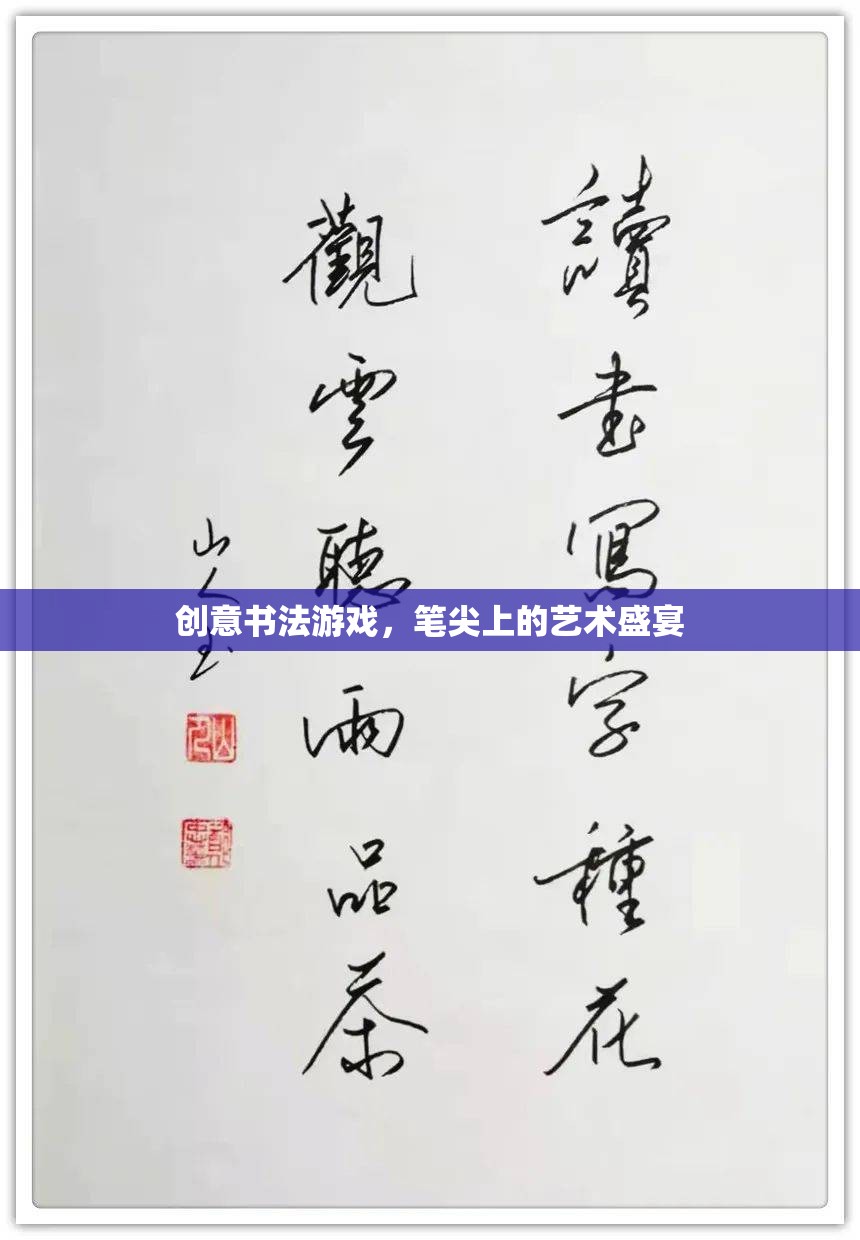 讀书寫字種花
觀雲聽雨品茶
山人玉
创意书法游戏，笔尖上的艺术盛宴